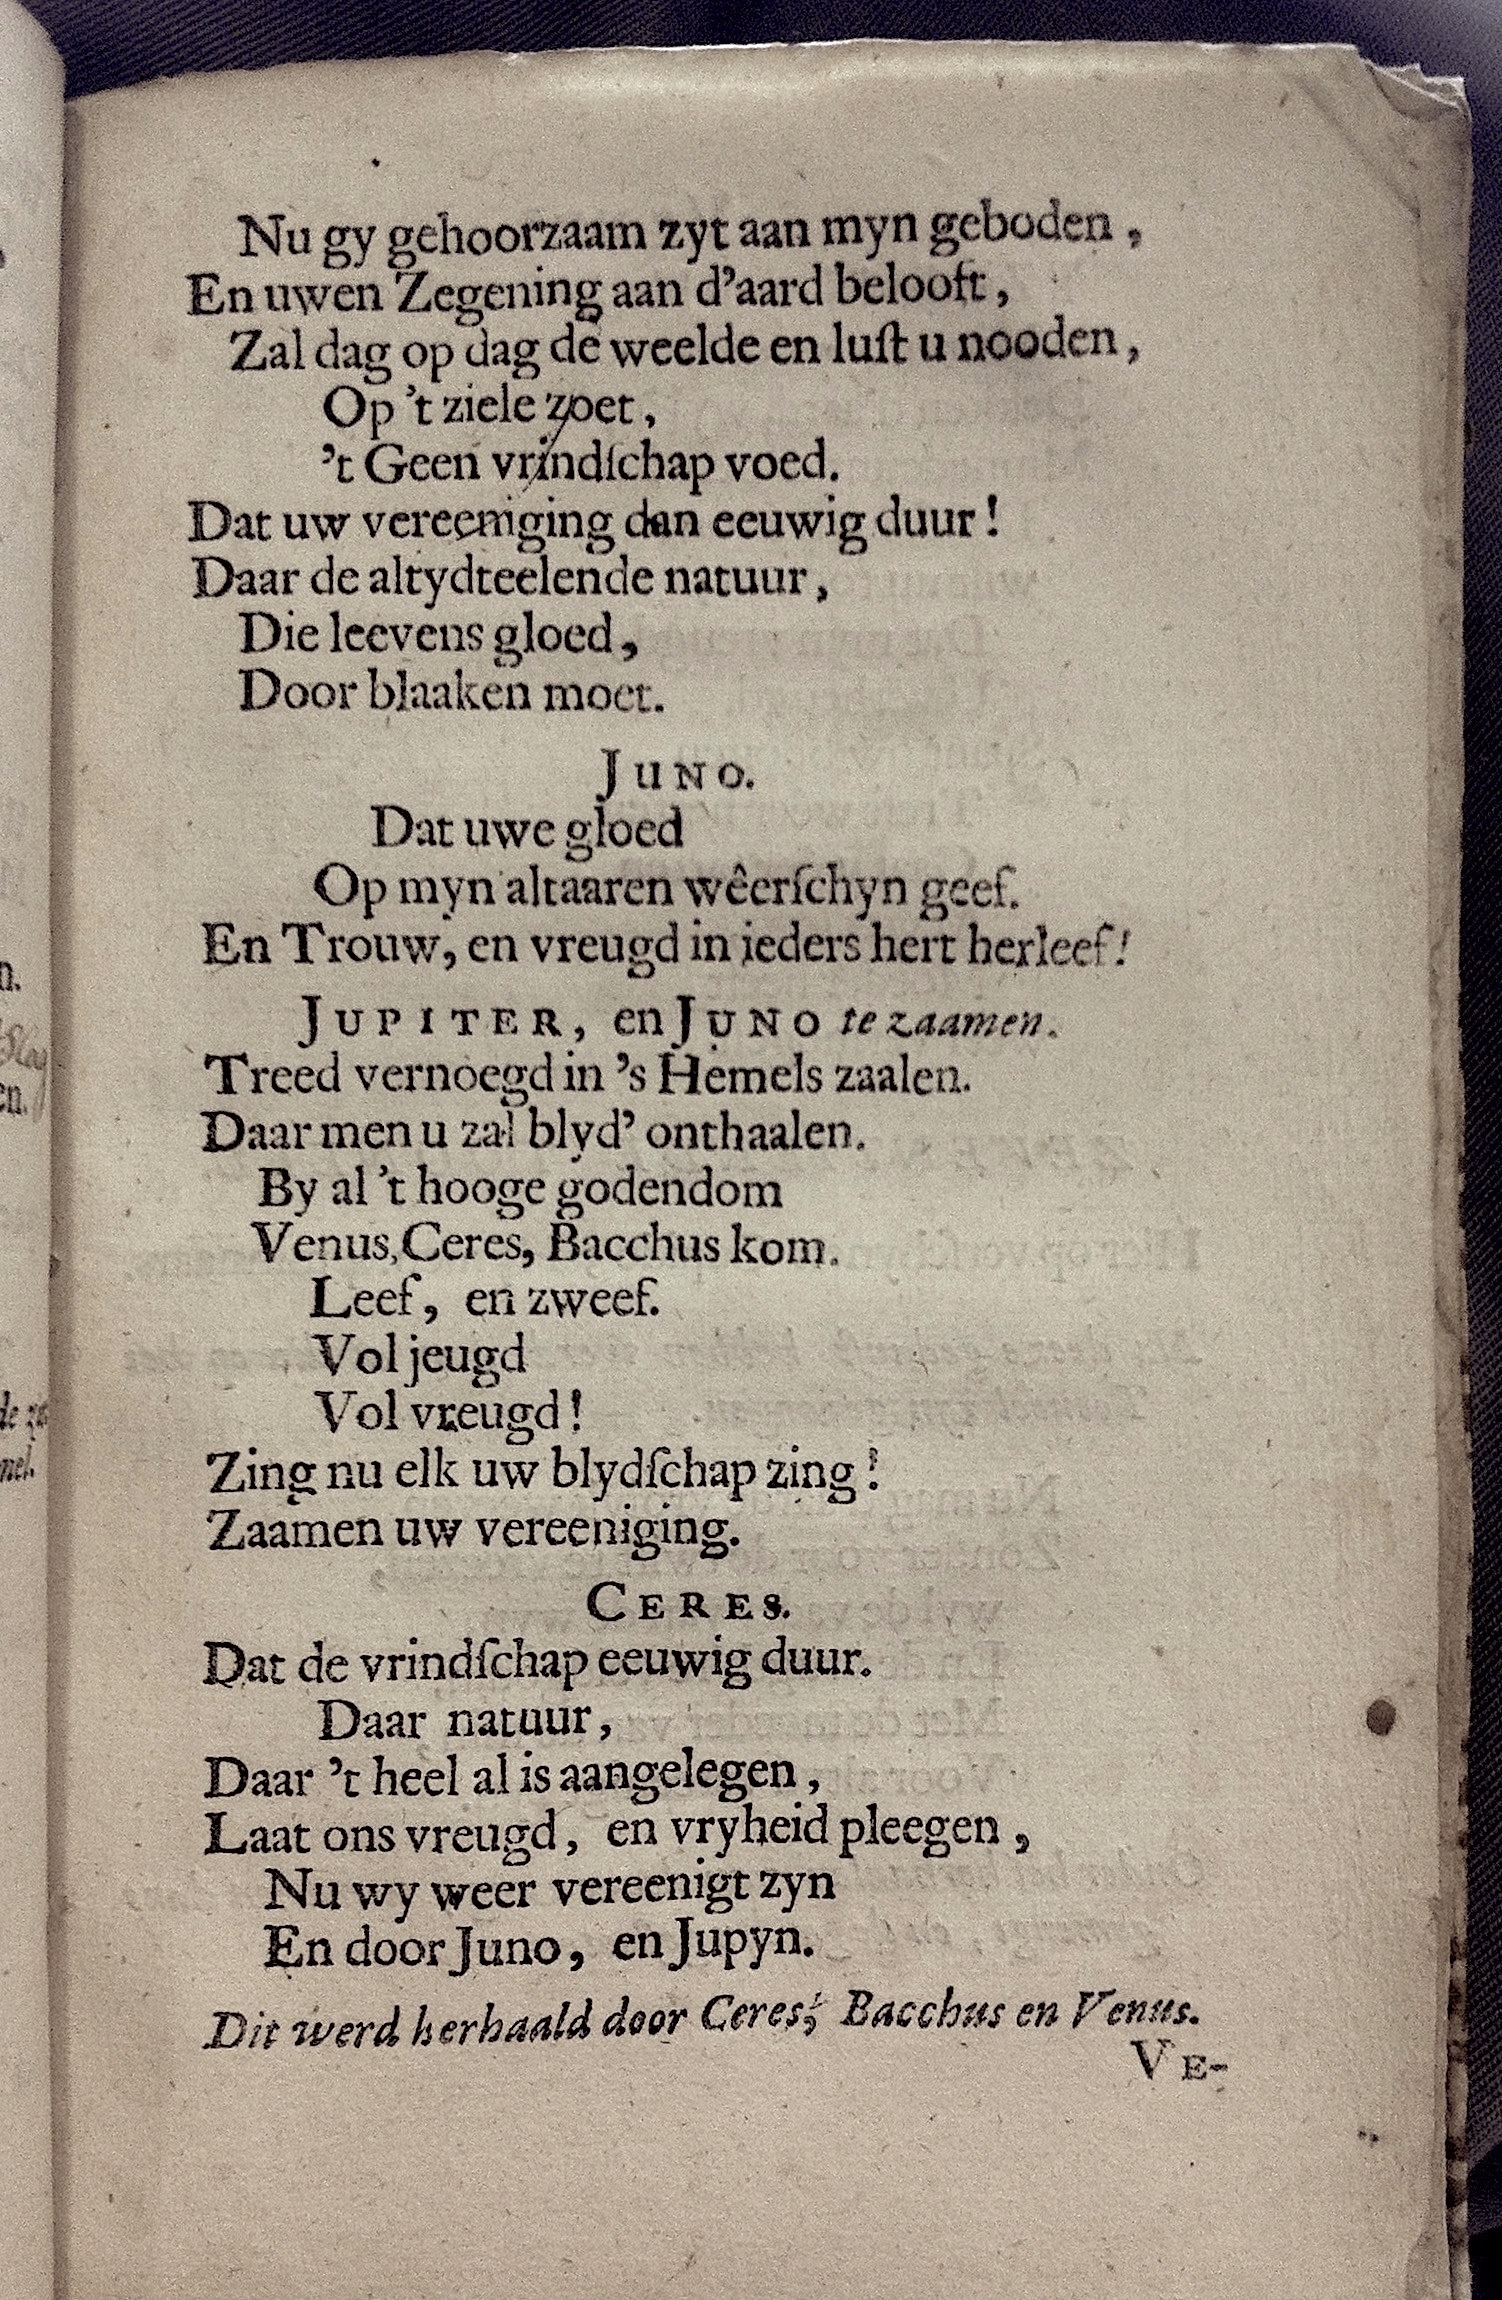 Nu gy gehoorzaam zyt aan myn geboden,
En uwen Zegening aan d'aard belooft,
Zal dag op dag de weelde en luſt u nooden,
Op 't ziele zoet,
't Geen vrindſchap voed.
Dat uw vereeniging dan eeuwig duur!
Daar de altydteelende natuur,
Die leevens gloed,
Door blaaken moet.
JUNO.
Dat uwe gloed
Op myn altaaren wêerſchyn geef.
En Trouw, en vreugd in ieders hert herleef!
JUPITER, en JUNO te zaamen.
Treed vernoegd in 's Hemels zaalen.
Daar men u zal blyd' onthaalen.
By al 't hooge godendom
Venus, Ceres, Bacchus kom.
Leef, en zweef.
Vol jeugd
Vol vreugd!
Zing nu elk uw blydſchap zing!
Zaamen uw vereeniging.
CERES.
Dat de vrindſchap eeuwig duur.
Daar natuur,
Daar 't heel al is aangelegen,
Laat ons vreugd, en vryheid pleegen,
Nu wy weer vereenigt zyn
En door Juno, en Jupyn.
Dit werd herhaald door Ceres, Bacchus en Venus.
VE-